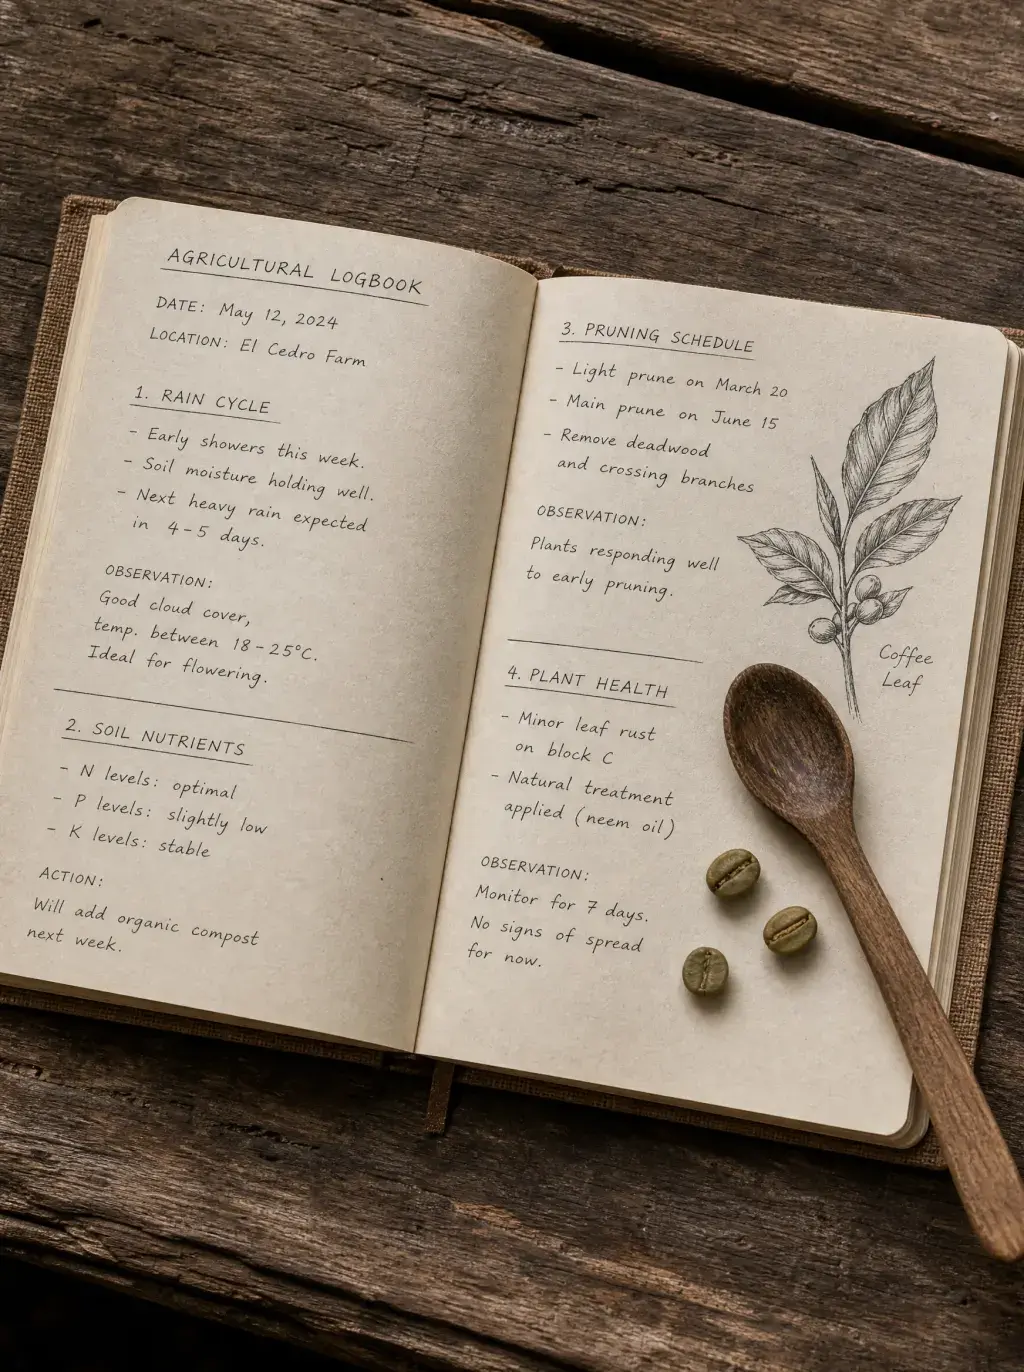 AGRICULTURAL LOGBOOK
DATE: May 12, 2024
LOCATION: El Cedro Farm
1. RAIN CYCLE
- Early showers this week.
- Soil moisture holding well.
- Next heavy rain expected
in 4-5 days.
OBSERVATION:
Good cloud cover,
temp. between 18-25°C.
Ideal for flowering.
2. SOIL NUTRIENTS
- N levels: optimal
- P levels: slightly low
- K levels: stable
ACTION:
Will add organic compost
next week.
3. PRUNING SCHEDULE
- Light prune on March 20
- Main prune on June 15
- Remove deadwood
and crossing branches
OBSERVATION:
Plants responding well
to early pruning.
Coffee
Leaf
4. PLANT HEALTH
- Minor leaf rust
on block C
- Natural treatment
applied (neem oil)
OBSERVATION:
Monitor for 7 days.
No signs of spread
for now.